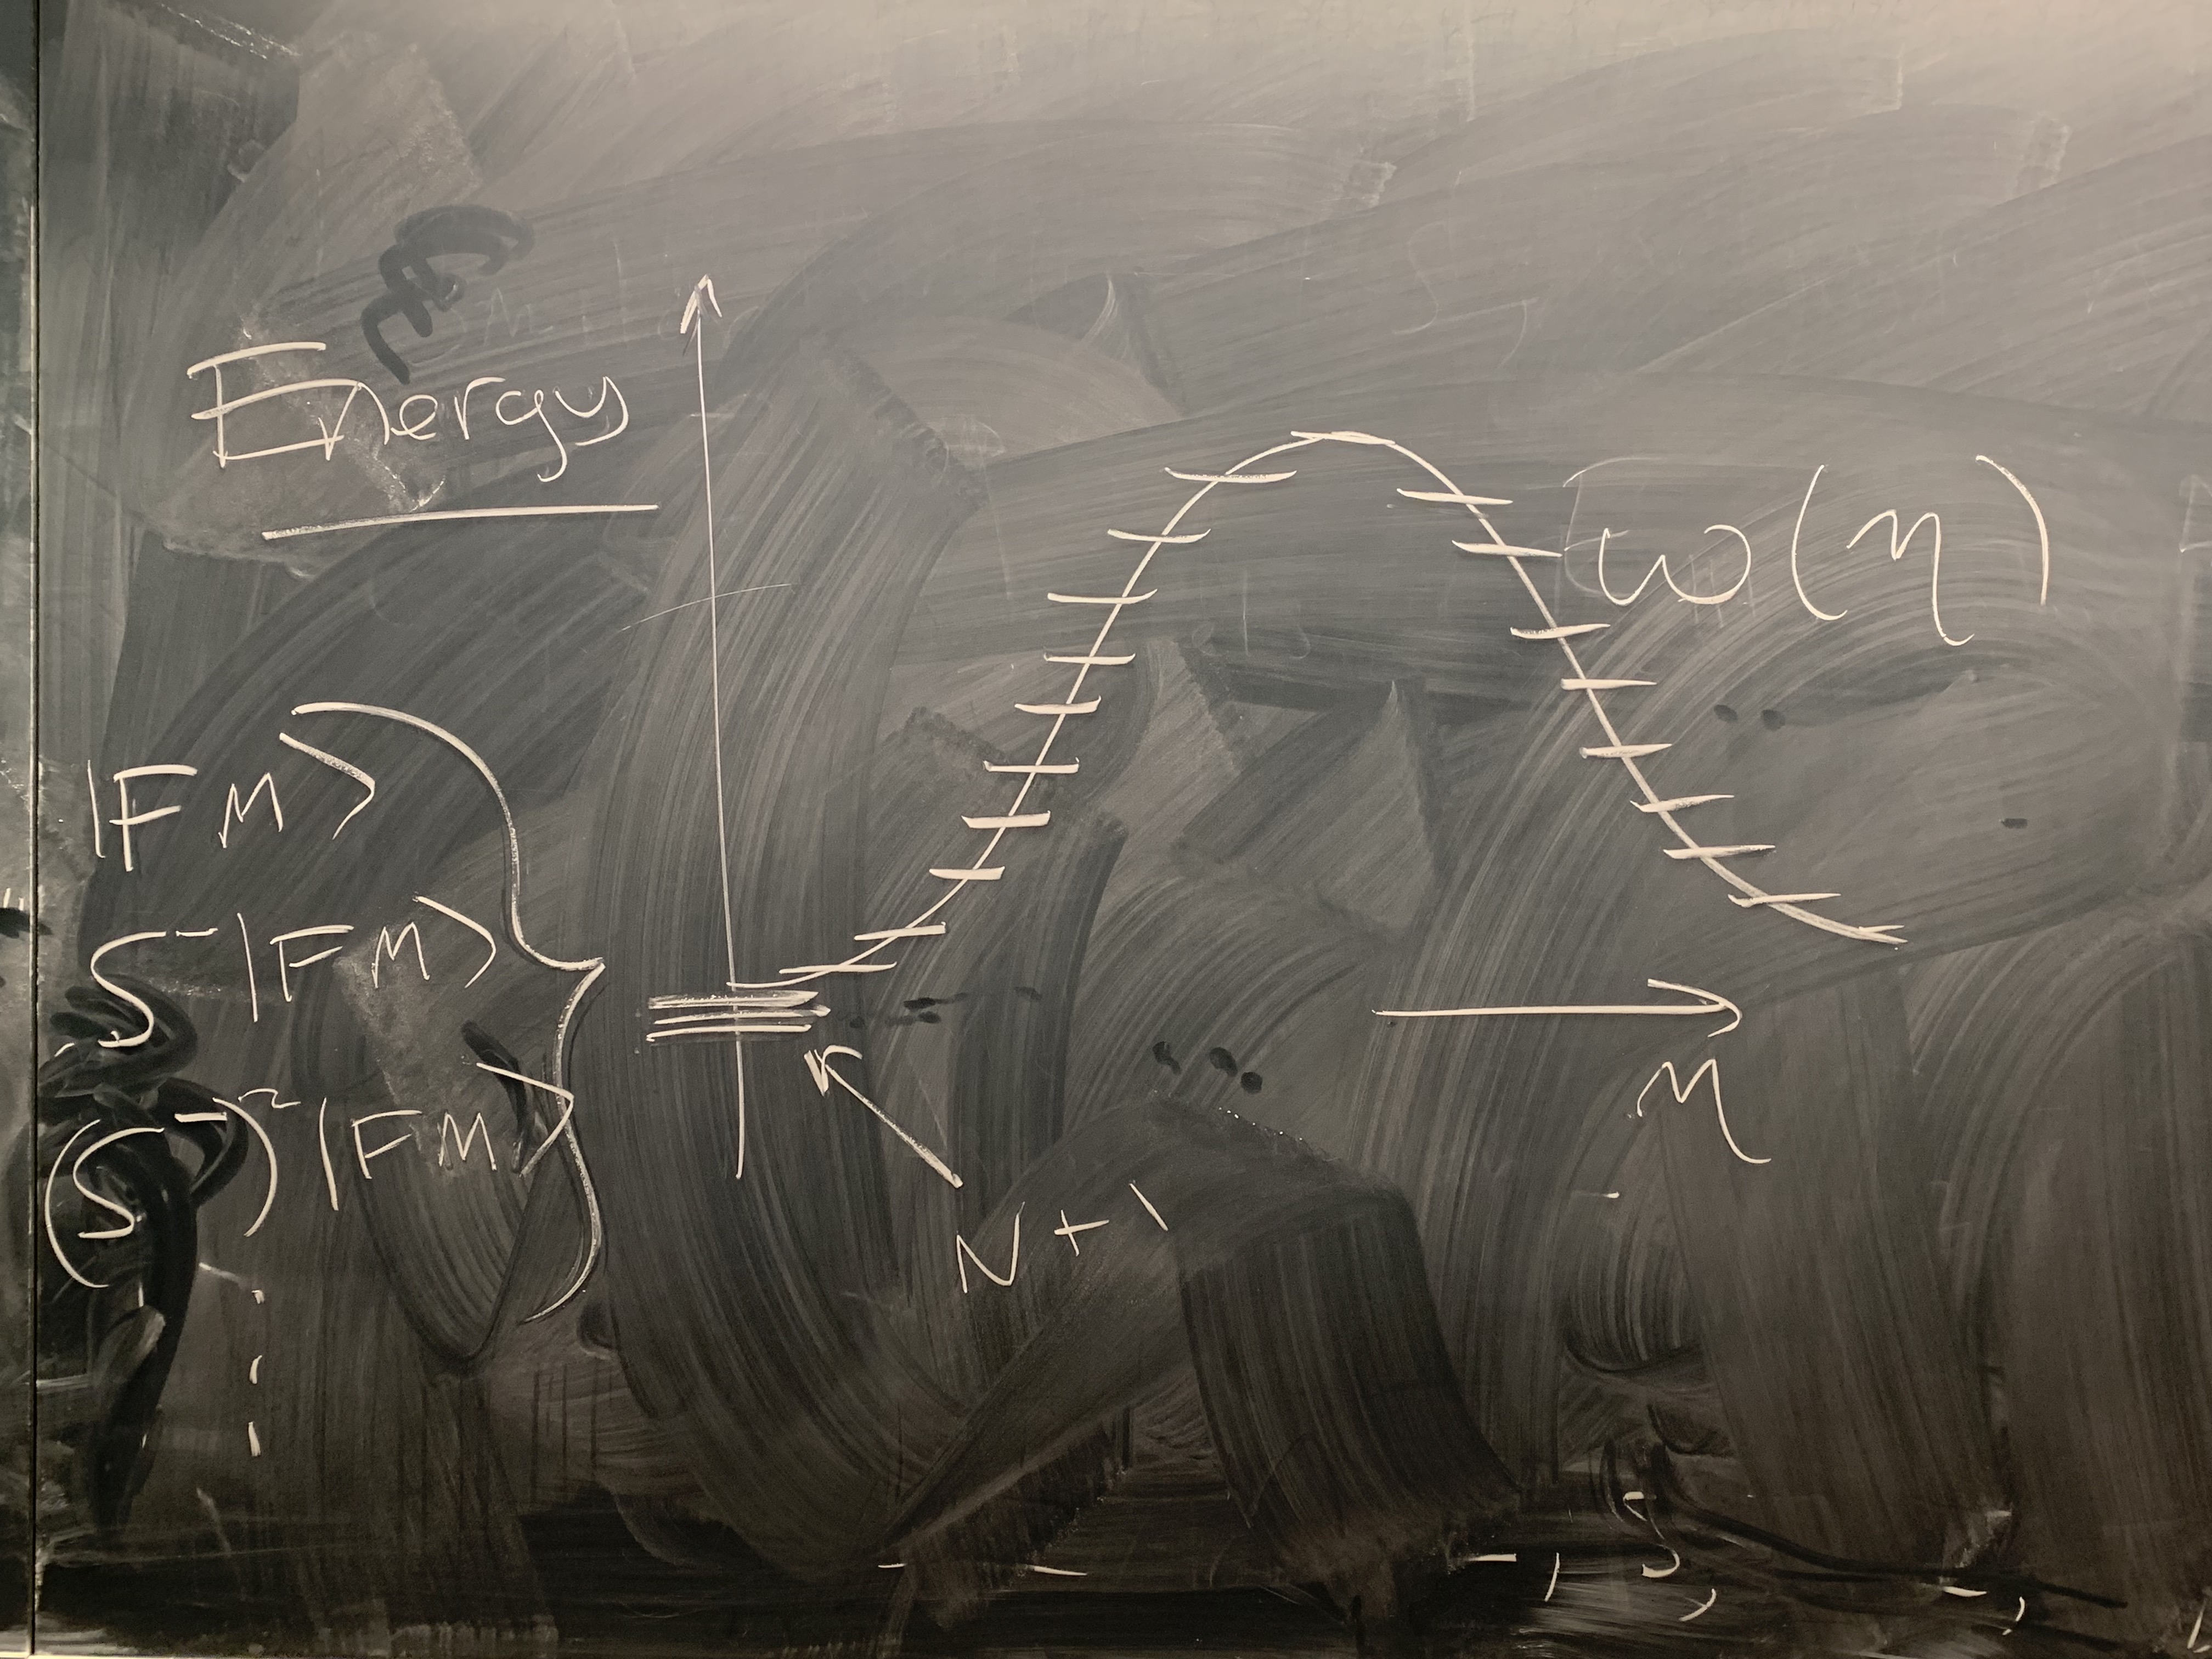 Energy
ω(η)
|FM⟩
S⁻|FM⟩
(S⁻)²|FM⟩
η
N+1